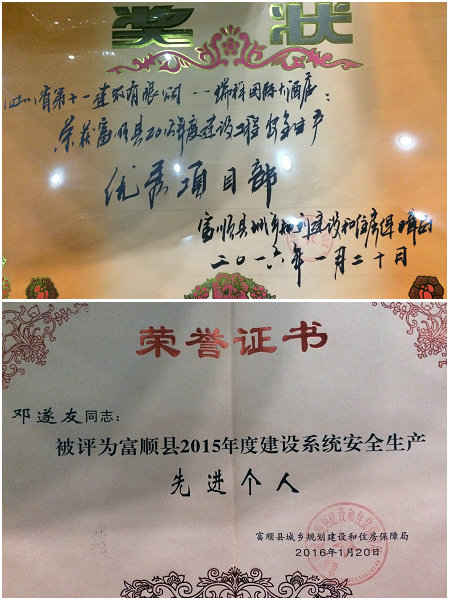 奖状
四川省第十一建筑有限公司--瑞祥国际大酒店:
荣获富顺县2015年度建设工程安全生产
优秀项目部
富顺县城乡规划建设和住房保障局
二〇一六年一月二十日
荣誉证书
邓遂友同志:
被评为富顺县2015年度建设系统安全生产
先进个人
富顺县城乡规划建设和住房保障局
2016年1月20日